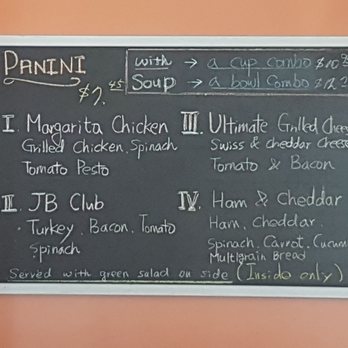 PANINI
$7.45
with → a cup combo $10
Soup → a bowl combo $12
I Margarita Chicken
Grilled Chicken, Spinach
Tomato Pesto
II JB Club
Turkey, Bacon, Tomato
Spinach
III. Ultimate Grilled Chees
Swiss & cheddar cheese
Tomato & Bacon
IV. Ham & Cheddar
Ham, Cheddar,
Spinach, Carrot, Cucum
Multigrain Bread
Served with green salad on side (Inside only)